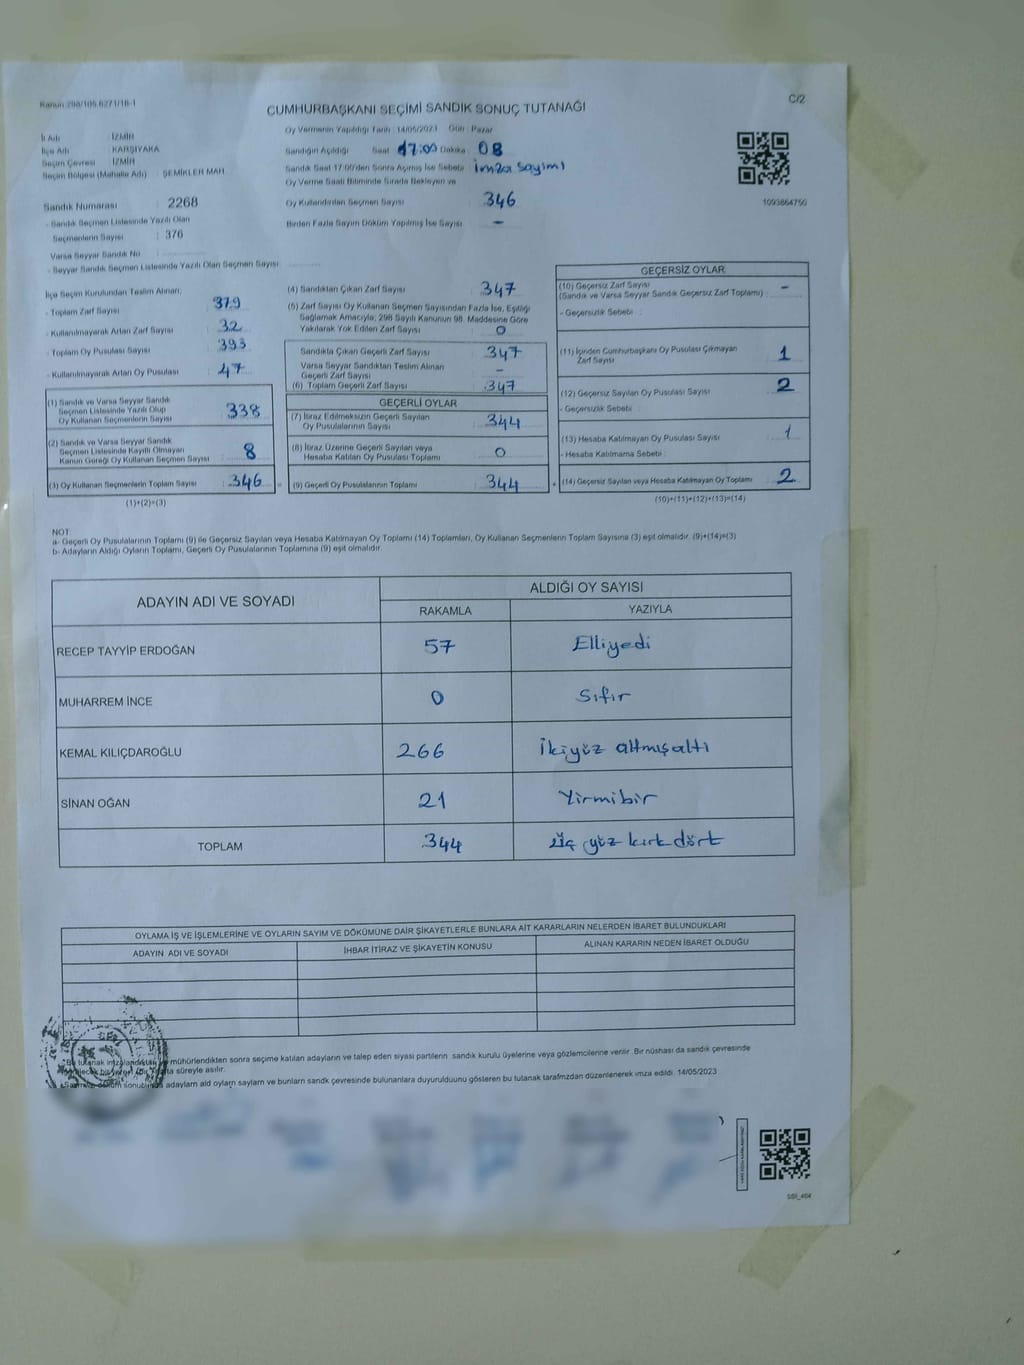 Kanun:298/105.6271/18-1
CUMHURBAŞKANI SEÇİMİ SANDIK SONUÇ TUTANAĞI
C/2
İl Adı : İZMİR
İlçe Adı : KARŞIYAKA
Seçim Çevresi : İZMİR
Seçim Bölgesi (Mahalle Adı) : ŞEMİKLER MAH.
Sandık Numarası : 2268
- Sandık Seçmen Listesinde Yazılı Olan
Seçmenlerin Sayısı : 376
Varsa Seyyar Sandık No
- Seyyar Sandık Seçmen Listesinde Yazılı Olan Seçmen Sayısı
Oy Vermenin Yapıldığı Tarih : 14/05/2023 Gün : Pazar
Sandığın Açıldığı Saat : 17:00 Dakika : 08
Sandık Saat 17:00'den Sonra Açılmış İse Sebebi : İmza Sayımı
Oy Verme Saati Bitiminde Sırada Bekleyen ve
Oy Kullandırılan Seçmen Sayısı : 346
Birden Fazla Sayım Döküm Yapılmış İse Sayısı : -
1093864750
İlçe Seçim Kurulundan Teslim Alınan;
- Toplam Zarf Sayısı : 379
- Kullanılmayarak Artan Zarf Sayısı : 32
- Toplam Oy Pusulası Sayısı : 393
- Kullanılmayarak Artan Oy Pusulası : 47
(1) Sandık ve Varsa Seyyar Sandık
Seçmen Listesinde Yazılı Olup
Oy Kullanan Seçmenlerin Sayısı : 338
(2) Sandık ve Varsa Seyyar Sandık
Seçmen Listesinde Kayıtlı Olmayan
Kanun Gereği Oy Kullanan Seçmen Sayısı : 8
(3) Oy Kullanan Seçmenlerin Toplam Sayısı : 346
(1)+(2)=(3)
(4) Sandıktan Çıkan Zarf Sayısı : 347
(5) Zarf Sayısı Oy Kullanan Seçmen Sayısından Fazla İse, Eşitliği
Sağlamak Amacıyla; 298 Sayılı Kanunun 98. Maddesine Göre
Yakılarak Yok Edilen Zarf Sayısı : 0
Sandıkta Çıkan Geçerli Zarf Sayısı : 347
Varsa Seyyar Sandıktan Teslim Alınan
Geçerli Zarf Sayısı : -
(6) Toplam Geçerli Zarf Sayısı : 347
GEÇERLİ OYLAR
(7) İtiraz Edilmeksizin Geçerli Sayılan
Oy Pusulalarının Sayısı : 344
(8) İtiraz Üzerine Geçerli Sayılan veya
Hesaba Katılan Oy Pusulası Toplamı : 0
(9) Geçerli Oy Pusulalarının Toplamı : 344
GEÇERSİZ OYLAR
(10) Geçersiz Zarf Sayısı
(Sandık ve Varsa Seyyar Sandık Geçersiz Zarf Toplamı) : -
- Geçersizlik Sebebi :
(11) İçinden Cumhurbaşkanı Oy Pusulası Çıkmayan
Zarf Sayısı : 1
(12) Geçersiz Sayılan Oy Pusulası Sayısı : 2
- Geçersizlik Sebebi :
(13) Hesaba Katılmayan Oy Pusulası Sayısı : 1
- Hesaba Katılmama Sebebi :
(14) Geçersiz Sayılan veya Hesaba Katılmayan Oy Toplamı : 2
(10)+(11)+(12)+(13)=(14)
NOT
a- Geçerli Oy Pusulalarının Toplamı (9) ile Geçersiz Sayılan veya Hesaba Katılmayan Oy Toplamı (14) Toplamları, Oy Kullanan Seçmenlerin Toplam Sayısına (3) eşit olmalıdır. (9)+(14)=(3)
b- Adayların Aldığı Oyların Toplamı, Geçerli Oy Pusulalarının Toplamına (9) eşit olmalıdır.
ADAYIN ADI VE SOYADI
ALDIĞI OY SAYISI
RAKAMLA YAZIYLA
RECEP TAYYİP ERDOĞAN 57 Elliyedi
MUHARREM İNCE 0 Sıfır
KEMAL KILIÇDAROĞLU 266 İkiyüz altmışaltı
SİNAN OĞAN 21 Yirmibir
TOPLAM 344 Üç yüz kırk dört
OYLAMA İŞ VE İŞLEMLERİNE VE OYLARIN SAYIM VE DÖKÜMÜNE DAİR ŞİKAYETLERLE BUNLARA AİT KARARLARIN NELERDEN İBARET BULUNDUKLARI
ADAYIN ADI VE SOYADI İHBAR İTİRAZ VE ŞİKAYETİN KONUSU ALINAN KARARIN NEDEN İBARET OLDUĞU
mühürlendikten sonra seçime katılan adayların ve talep eden siyasi partilerin sandık kurulu üyelerine veya gözlemcilerine verilir. Bir nüshası da sandık çevresinde
süreyle asılır.
adaylarn ald oylarn saylarn ve bunlarn sandk çevresinde bulunanlara duyurulduunu gösteren bu tutanak tarafmzdan düzenlenerek imza edildi. 14/05/2023